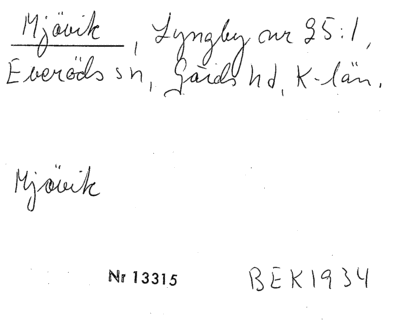 Mjövik, Lyngby nr 25:1,
Everöds sn, Gärds hd, K-län.
Mjövik
Nr 13315
BEK1934